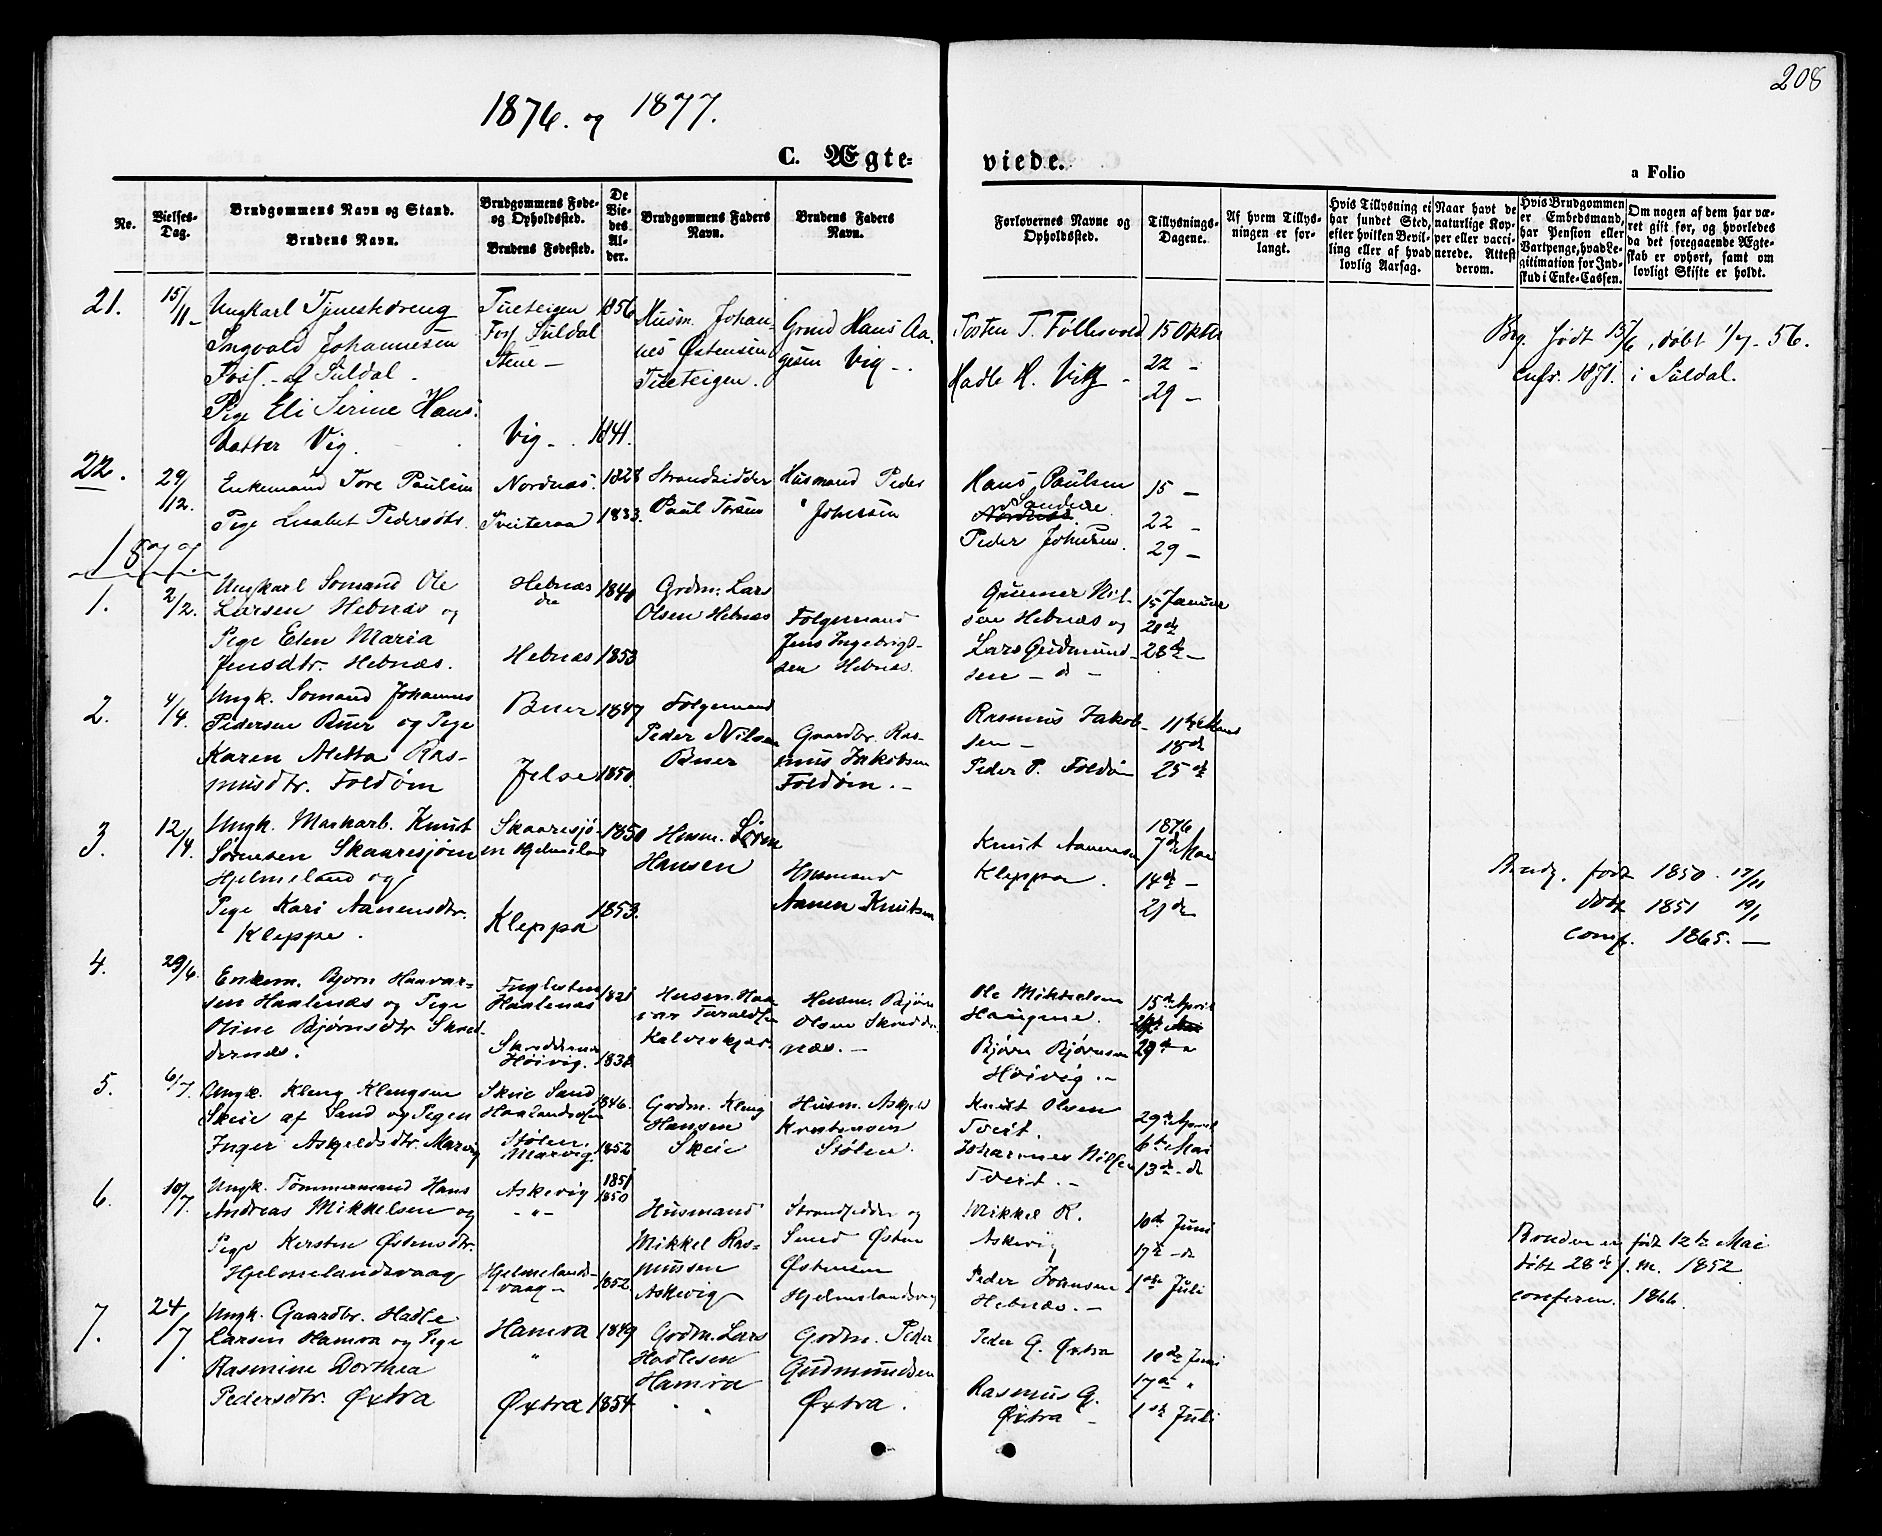 208
1876. og 1877.
C. Ægte-
viede.
a Folio
No.
Vielses-
Dag.
Brudgommens Navn og Stand.
Brudens Navn.
Brudgommens Føde-
og Opholdssted.
Brudens Fødested.
De
Vie-
des
Al-
der.
Brudgommens Faders
Navn.
Brudens Faders
Navn.
Forlovernes Navne og
Opholdssted.
Tillysnings-
Dagene.
Af hvem Tillys-
ningen er for-
langt.
Hvis Tillysning ei
har fundet Sted,
efter hvilken Bevil-
ling eller af hvad
lovlig Aarsag.
Naar havt de
naturlige Kop-
per eller vacci-
nerede. Attest
derom.
Hvis Brudgommen
er Embedsmand,
har Pension eller
Vartpenge, hvad Le-
gitimation for Ind-
skud i Enke-Cassen.
Om nogen af dem har væ-
ret gift før, og hvorledes
da det foregaaende Ægte-
skab er ophørt, samt om
lovligt Skifte er holdt.
21.
15/11
Ungkarl Tjenestedreng
Ingvald Johannesen
Foss. af Suldal.
Pige Eli Serine Hans-
datter Vig.
Tueteigen
Foss Suldal
Stene
Vig
1856
1841.
Husm. Johan-
nes Østensen
Tueteigen.
Grmd Hans Aa-
gesen Vig
Tosten T. Føllesvold
Hadle H. Vig
15 Oktbr
22 –
29 –
Brg. født 15/6, døbt 1/7 - 56.
cnfr. 1871. i Suldal.
22.
29/12.
Enkemand Tore Paulsen
Pige Lisabet Pedersdtr.
Nordnas.
Tveiteraa
1828
1833.
Strandsidder
Paul Torsen
Husmand Peder
Johnsen
Hans Paulsen
Sandene
Peder Johnsen.
15 –
22 –
29 –
1877
1.
2/2.
Ungkarl Somand Ole
Larsen Hebnas og
Pige Elen Maria
Jensdtr. Hebnæs.
Hebnæs
do
Hebnæs
1840
1853
Grdm. Lars
Olsen Hebnæs
Folgemand
Jens Ingebrigt-
sen Hebnæs.
Gunner Nil-
sen Hebnæs og
Lars Gudmund-
sen – d –
15 Januar
21 de
28 de –
2.
4/4.
Ungk. Somand Johannes
Pedersen Buer og Pige
Karen Metta Ras-
musdtr. Foldøen
Buer
Jelse
1847
1850.
Folgemand
Peder Nilsen
Buer
Gaardbr. Ras-
mus Jakobsen
Foldøen. –
Rasmus Jakob-
sen –
Peder P. Foldøen
11 de Mars
18 de
25 de
3.
12/4.
Ungk. Maskarb. Knut
Sørensen Skaaresjøen
Hjelmeland og
Pige Kari Aanensdtr.
Kleppe.
Skaaresjø-
en Hjelmeland
Kleppa
1850
1853.
Husm. Søren
Hansen
Husmand
Aanen Knutsen
Knut Aanensen
Kleppa.
1876
7 de Mai
14 de –
21 de
Brudg. født 1850. 17/11
døbt 1851 19/1
comf. 1865. –
4.
29/6.
Enkem. Bjorn Haavar-
sen Haalenæs og Pige
Oline Bjørnsdtr. Skud-
dernæs.
Fuglesten
Haalenæs
Skuddernæs
Høivig.
1821
1838
Husm. Haa-
var Taraldsen
Kalveskjær.
Husm. Bjørn
Olsen Skudder-
næs. –
Ole Mikkelsen
Haugene.
Bjørn Bjørnsen
Høivig. –
15 de April
29 de "
5.
6/7.
Ungk. Kleng Klengsen
Skeie af Sand og Pigen
Inger Askjeldsdtr. Marvig
Skeie Sand
Haalandsosen
Stølen.
Marvig.
1846.
1852
Grdm. Kleng
Hansen
Skeie
Husm. Askjeld
Kristensen
Stølen.
Knut Olsen
Tveit.
Johannes Nilsen
Tveit. –
29 de April
6 te Mai
13 de – de
6.
10/7.
Ungk. Tømmermand Hans
Andreas Mikkelsen og
Pige Kersten Østensdtr.
Hjelmelandsvaag
Askevig
– " –
Hjelmelands-
vaag –
1851
1850
1852
Husmand
Mikkel Ras-
mussen
Askevig
Strandsidder og
Smed Østen
Østensen
Hjelmelandsvg
Mikkel R.
Askevig
Peder Johnsen
Hebnæs. –
10 de Juni
17 de – de
1 ste Juli
Bruden er født 12 te Mai
døbt 28 de s. m. 1852.
confirm. 1866.
7.
24/7.
Ungk. Gaardbr. Hadle
Larsen Hamra og Pige
Rasmine Dorthea
Pedersdtr. Øxtra
Hamra
"
Øxtra
1849
1854.
Grdm. Lars
Hadlesen
Hamra
Grdm. Peder
Gudmundsen
Øxtra.
Peder G. Øxtra
Rasmus G.
Øxtra –
10 de Juni
17 de "
1 ste Juli